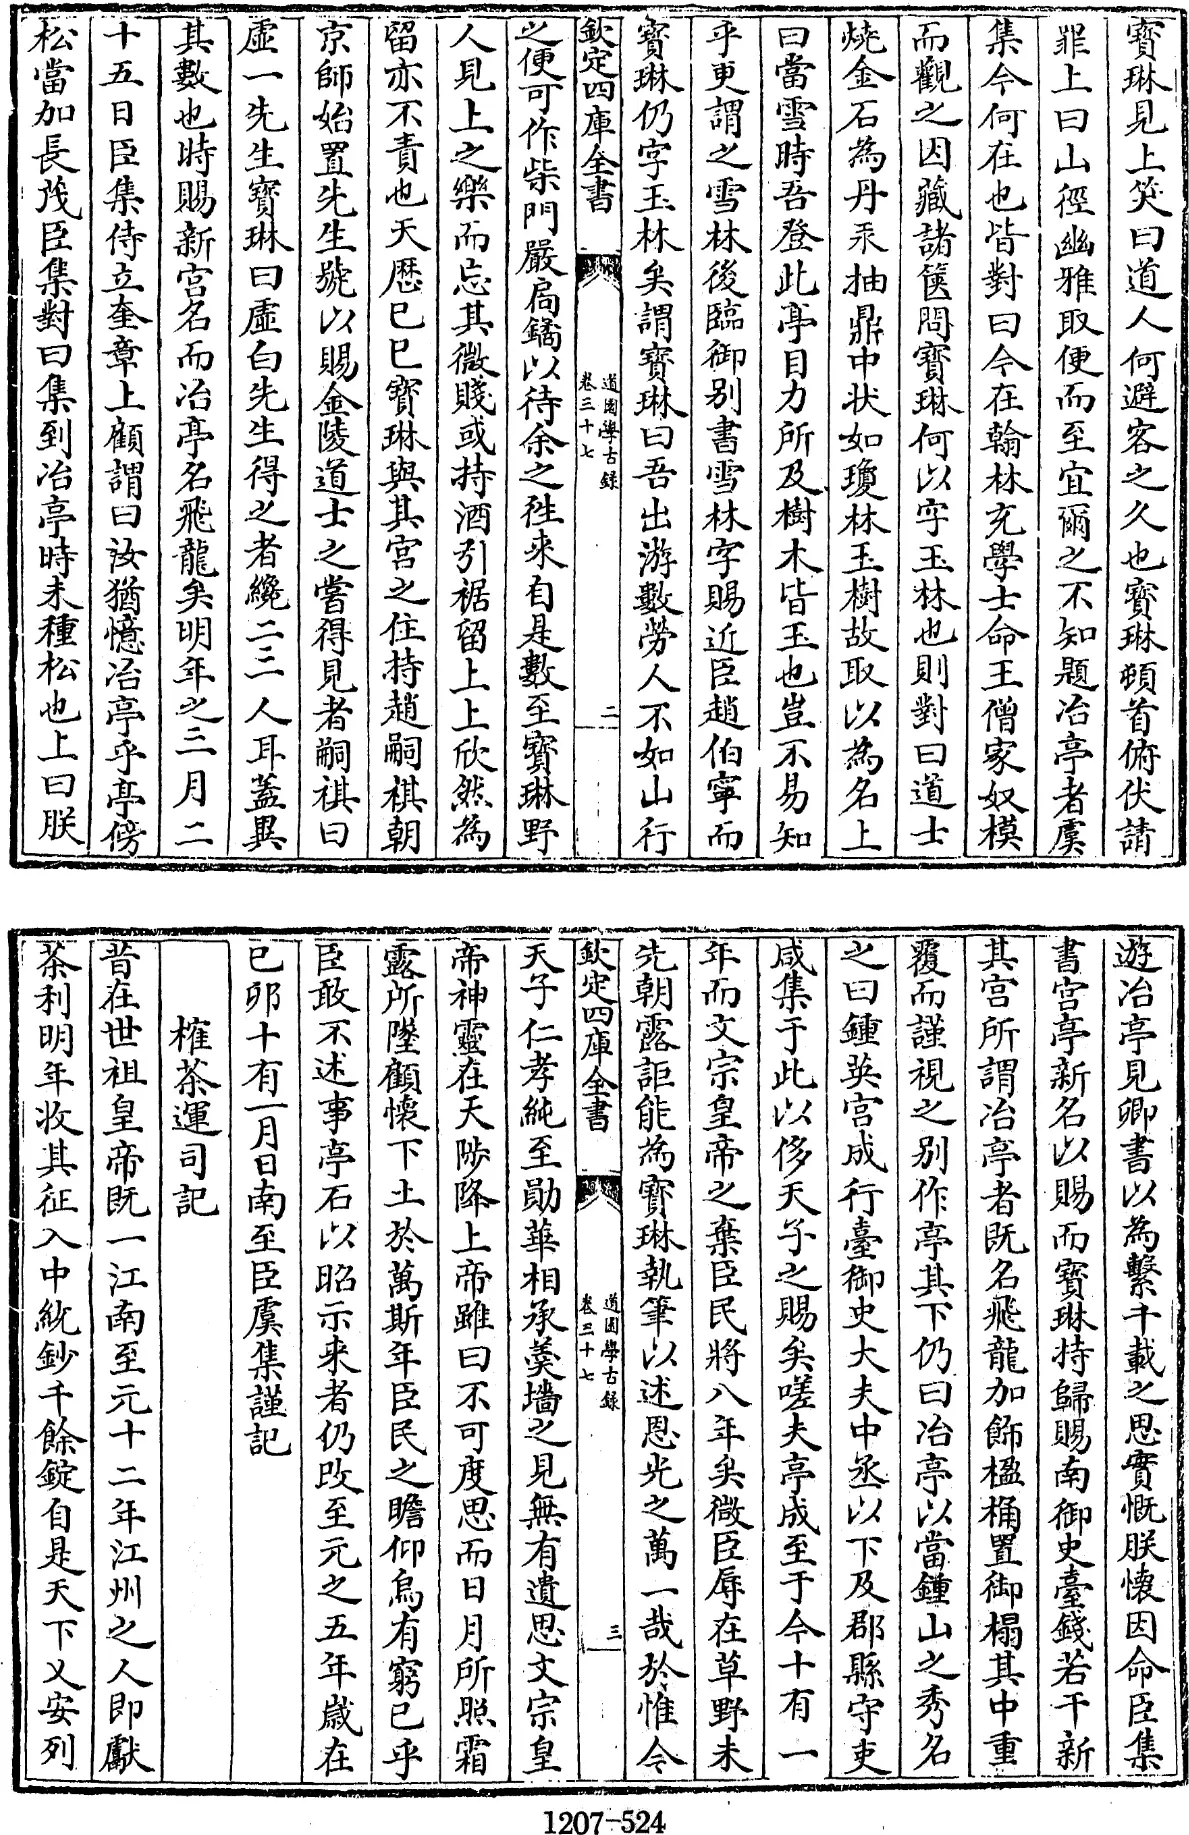 寳琳見上笑曰道人何避客之久也寳琳頓首俯伏請
罪上曰山徑幽雅取便而至宜爾之不知題冶亭者虞
集今何在也皆對曰今在翰林充學士命王僧家奴模
而觀之因藏諸篋問寳琳何以字玉林也則對曰道士
燒金石為丹汞抽鼎中状如瓊林玉樹故取以為名上
曰當雪時吾登此亭目力所及樹木皆玉也豈不易知
乎更謂之雪林後臨御别書雪林字賜近臣趙伯寧而
寳琳仍字玉林矣謂寳琳曰吾出游數勞人不如山行
欽定四庫全書
道園學古録
卷三十七
二
之便可作柴門嚴扃鐍以待余之徃來自是數至寳琳野
人見上之樂而忘其微賤或持酒引裾留上上欣然為
留亦不責也天厯已巳寳琳與其宮之住持趙嗣祺朝
京師始置先生號以賜金陵道士之嘗得見者嗣祺曰
虚一先生寳琳曰虚白先生得之者纔二三人耳蓋異
其數也時賜新宫名而冶亭名飛龍矣明年之三月二
十五日臣集侍立奎章上顧謂曰汝猶憶冶亭乎亭傍
松當加長茂臣集對曰集到冶亭時未種松也上曰朕
遊冶亭見卿書以為繫千載之思實慨朕懷因命臣集
書宫亭新名以賜而寳琳持歸賜南御史臺錢若干新
其宮所謂冶亭者既名飛龍加飾楹桷置御榻其中重
覆而謹視之别作亭其下仍曰冶亭以當鍾山之秀名
之曰鍾英宫成行臺御史大夫中丞以下及郡縣守吏
咸集于此以侈天子之賜矣嗟夫亭成至于今十有一
年而文宗皇帝之棄臣民將八年矣微臣辱在草野未
先朝露詎能為寳琳執筆以述恩光之萬一哉於惟今
欽定四庫全書
道園學古録
卷三十七
三
天子仁孝純至勛華相承羮墻之見無有遺思文宗皇
帝神靈在天陟降上帝雖曰不可度思而日月所照霜
露所墜顧懷下土於萬斯年臣民之瞻仰烏有窮已乎
臣敢不述事亭石以昭示来者仍改至元之五年歳在
已夘十有一月日南至臣虞集謹記
榷茶運司記
昔在世祖皇帝既一江南至元十二年江州之人即獻
茶利明年收其征入中統鈔千餘錠自是天下乂安列
1207-524